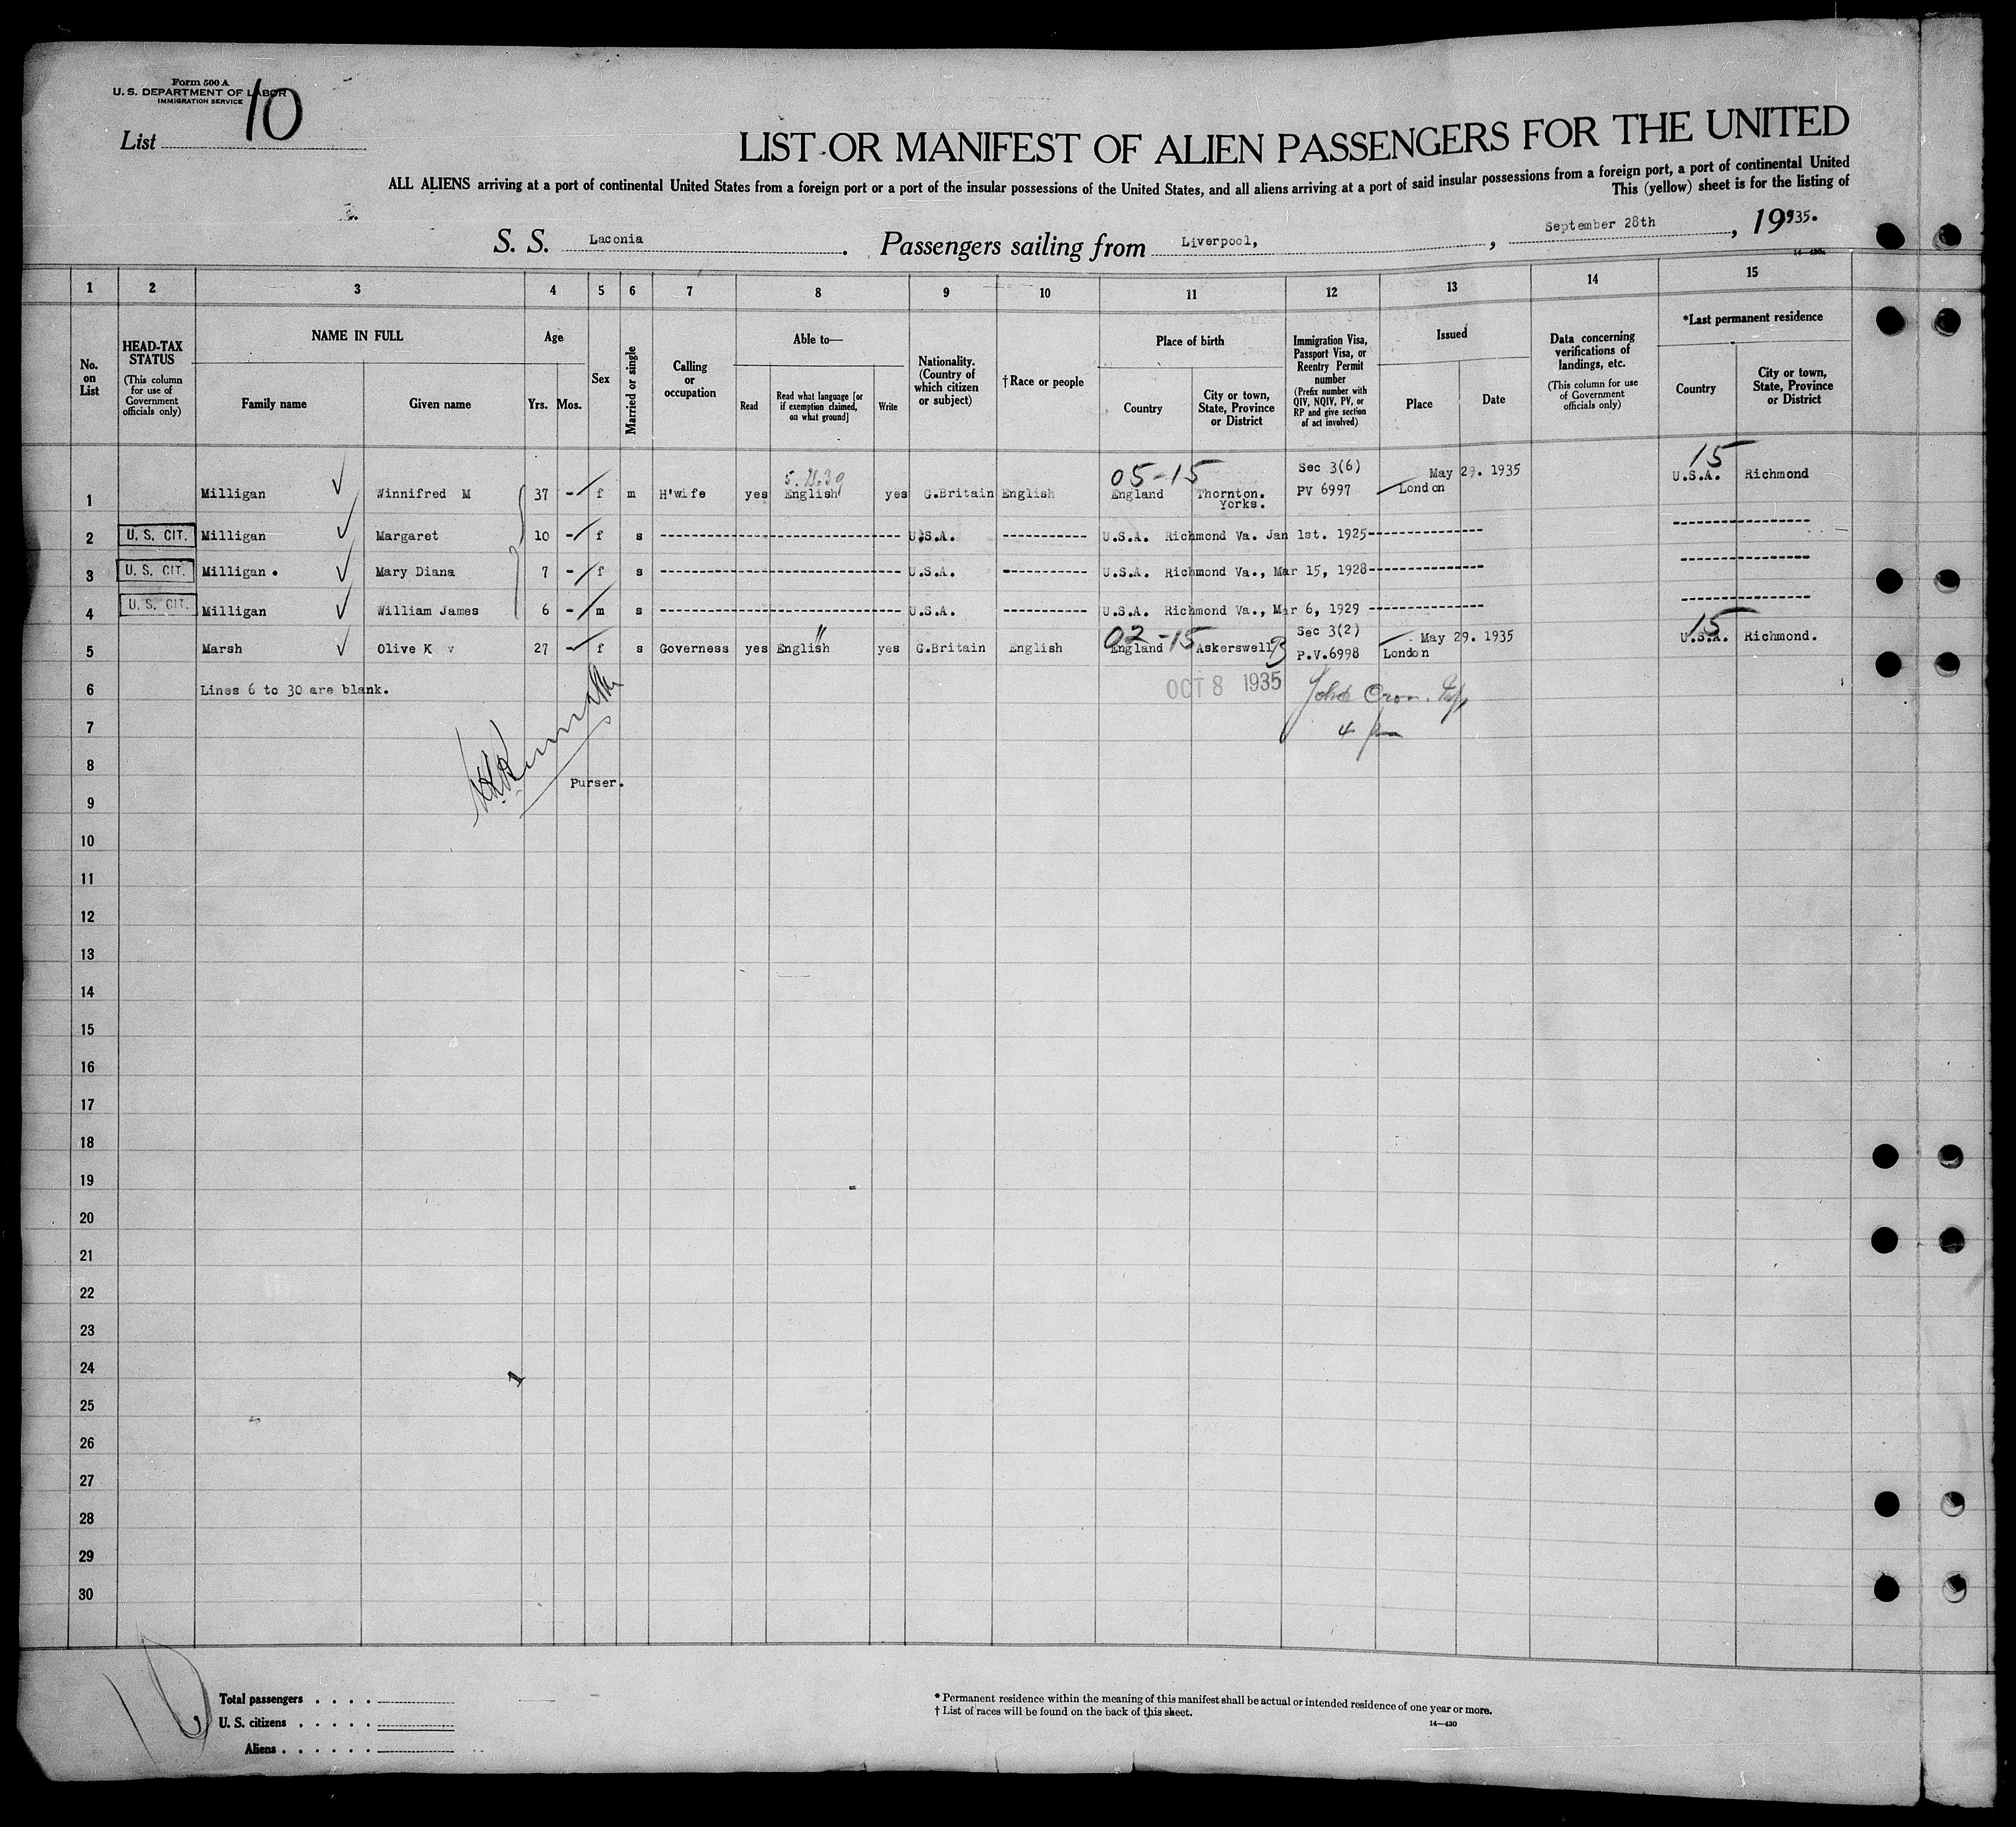 Form 500 A
U. S. DEPARTMENT OF LABOR
IMMIGRATION SERVICE
List 10
LIST OR MANIFEST OF ALIEN PASSENGERS FOR THE UNITED
ALL ALIENS arriving at a port of continental United States from a foreign port or a port of the insular possessions of the United States, and all aliens arriving at a port of said insular possessions from a foreign port, a port of continental United
This (yellow) sheet is for the listing of
S. S. Laconia. Passengers sailing from Liverpool, , September 28th, 19935.
14—430a
1 2 3 4 5 6 7 8 9 10 11 12 13 14 15
No. on List
HEAD-TAX STATUS (This column for use of Government officials only)
NAME IN FULL
Family name
Given name
Age
Yrs. Mos.
Sex
Married or single
Calling or occupation
Able to—
Read
Read what language [or if exemption claimed, on what ground]
Write
Nationality. (Country of which citizen or subject)
†Race or people
Place of birth
Country
City or town, State, Province or District
Immigration Visa, Passport Visa, or Reentry Permit number (Prefix number with QIV, NQIV, PV, or RP and give section of act involved)
Issued
Place
Date
Data concerning verifications of landings, etc. (This column for use of Government officials only)
*Last permanent residence
Country
City or town, State, Province or District
05-15 Sec 3(6) May 29. 1935 15
1 Milligan Winnifred M 37 - f m H'wife yes English yes G.Britain English England Thornton. Yorks. PV 6997 London U.S.A. Richmond
2 U. S. CIT. Milligan Margaret 10 - f s U.S.A. U.S.A. Richmond Va. Jan 1st. 1925
3 U. S. CIT. Milligan. Mary Diana 7 - f s U.S.A. U.S.A. Richmond Va., Mar 15, 1928
4 U. S. CIT. Milligan William James 6 - m s U.S.A. U.S.A. Richmond Va., Mar 6, 1929
02-15 Sec 3(2) May 29. 1935 15
5 Marsh Olive K v 27 - f s Governess yes English yes G.Britain English England Askerswell P.V.6998 London U.S.A. Richmond.
6 Lines 6 to 30 are blank. OCT 8 1935
7
8 Purser.
9
10
11
12
13
14
15
16
17
18
19
20
21
22
23
24
25
26
27
28
29
30
Total passengers . . . .
U. S. citizens . . . . .
Aliens . . . . . .
* Permanent residence within the meaning of this manifest shall be actual or intended residence of one year or more.
† List of races will be found on the back of this sheet.
14—430
10